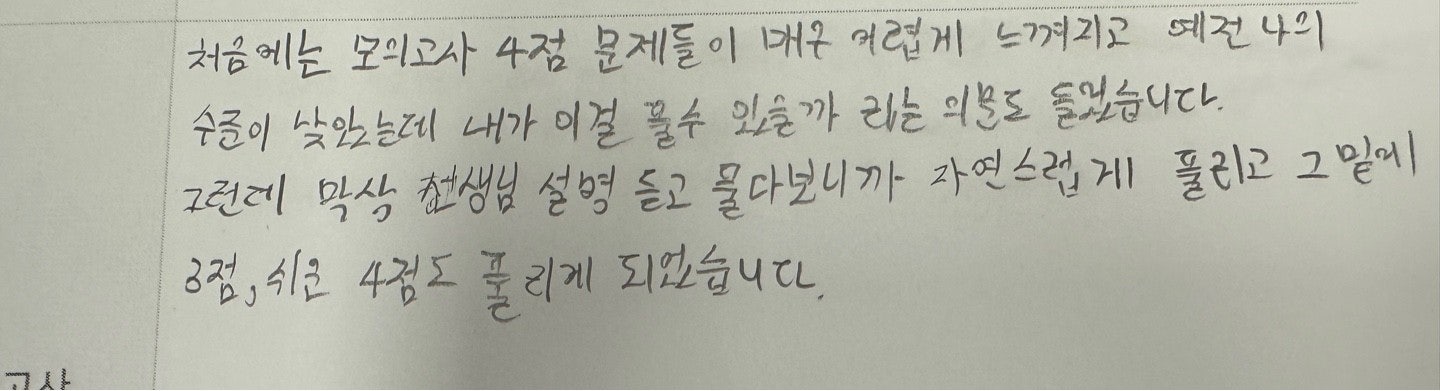 처음에는 모의고사 4점 문제들이 매우 어렵게 느껴지고 예전 나의
수준이 낮았는데 내가 이걸 풀수 있을까 라는 의문도 들었습니다.
그런데 막상 선생님 설명 듣고 풀다보니까 자연스럽게 풀리고 그 밑에
3점, 쉬운 4점도 풀리게 되었습니다.
고사